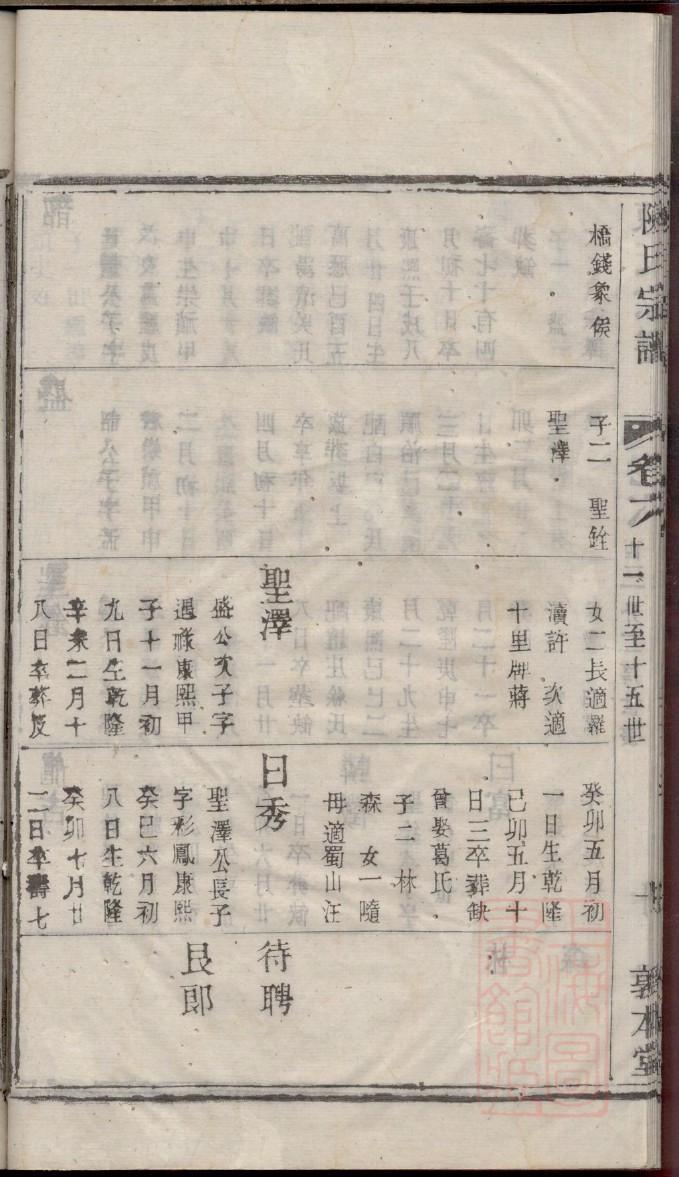 陳氏宗譜
卷六
十一世至十五世
敦本堂
橋錢象侯
子二 聖銓
聖澤
女二長適羅
瀆許 次適
十里牌蔣
聖澤
盛公次子字
遇祿康熙甲
子十一月初
九日生乾隆
辛眾二月十
八日卒葬反
癸卯五月初
一日生乾隆
己卯五月十
日三卒葬缺
曾娶葛氏
子二 林
森 女一隨
母適蜀山汪
日秀
聖澤公長子
字彩鳳康熙
癸巳六月初
八日生乾隆
癸卯七月廿
二日卒壽七
待聘
良郎